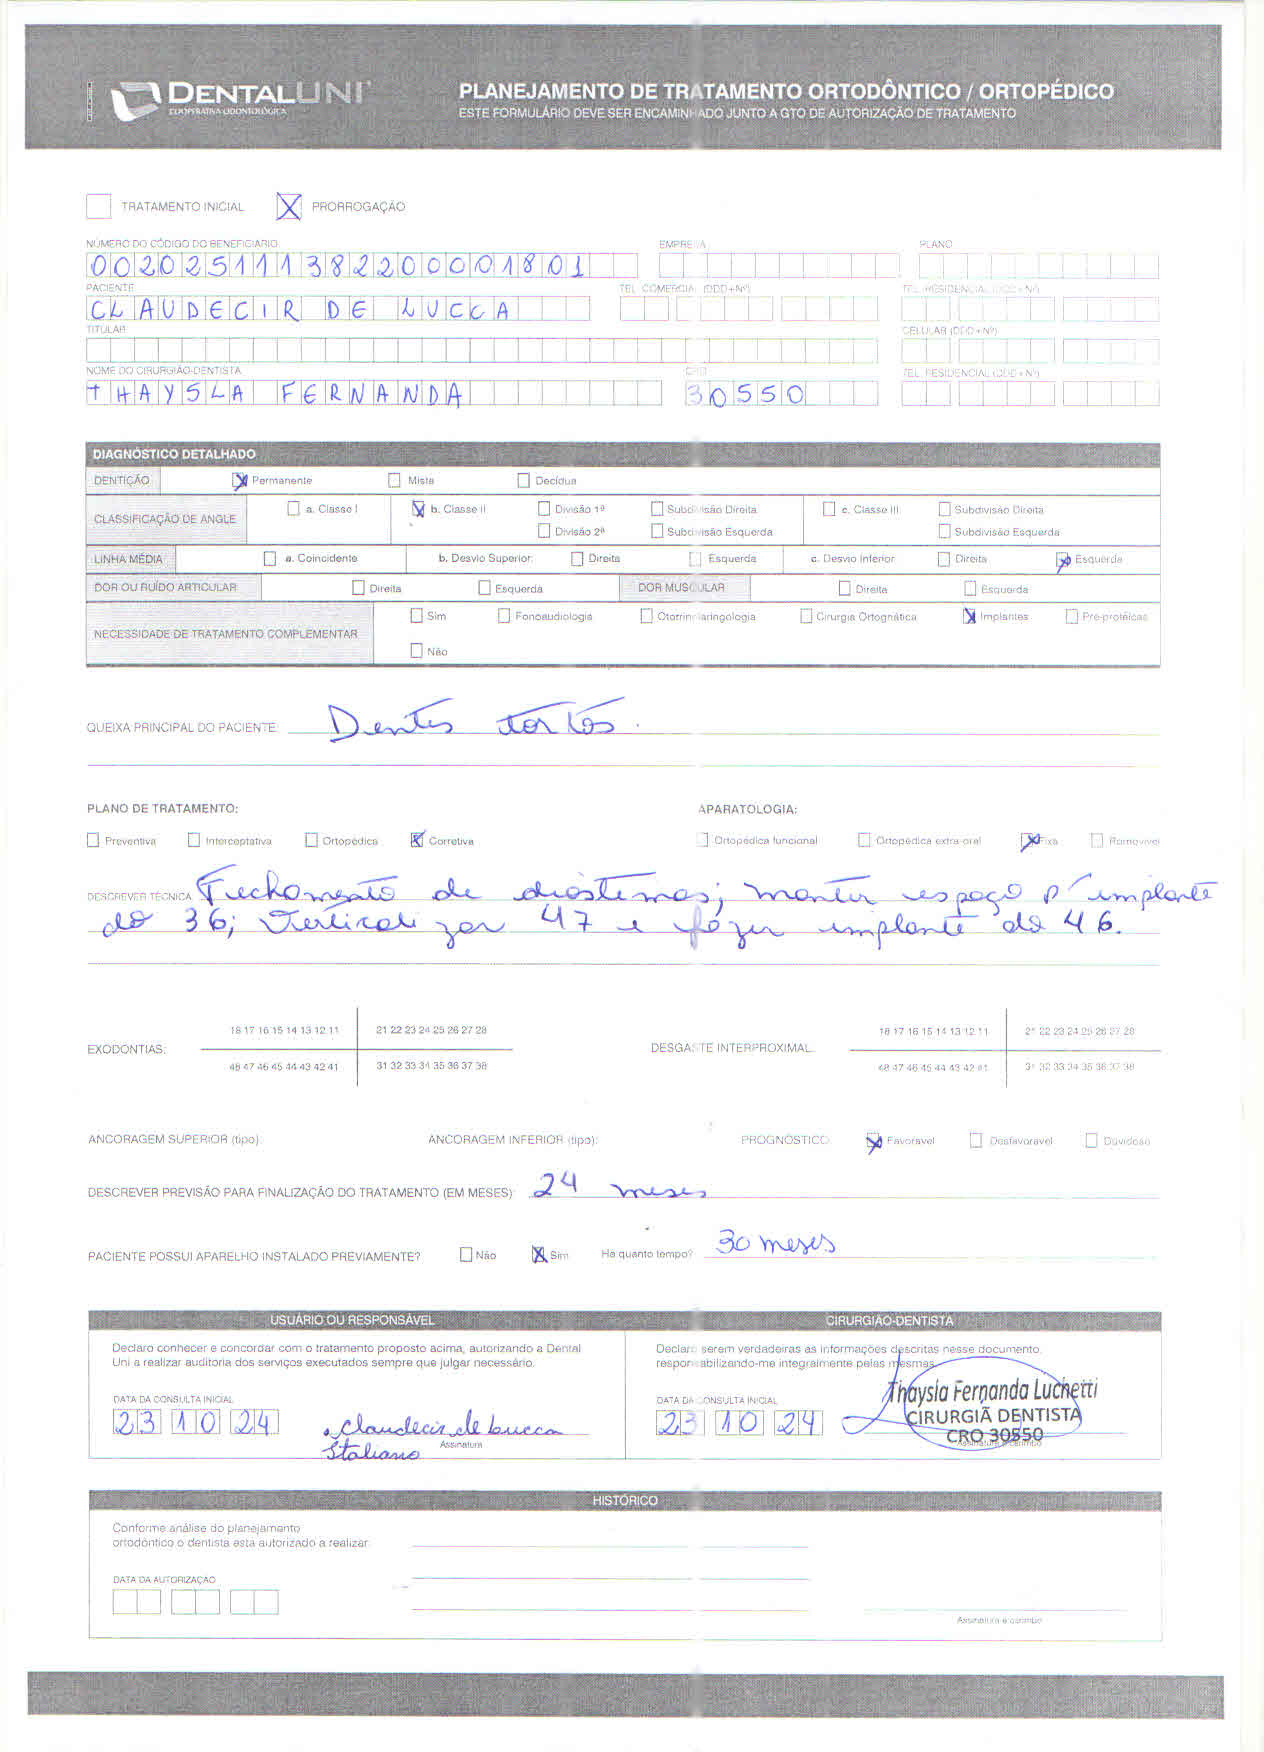 DENTALUNI
COOPERATIVA ODONTOLÓGICA
PLANEJAMENTO DE TRATAMENTO ORTODÔNTICO / ORTOPÉDICO
ESTE FORMULÁRIO DEVE SER ENCAMINHADO JUNTO A GTO DE AUTORIZAÇÃO DE TRATAMENTO
TRATAMENTO INICIAL X PRORROGAÇÃO
NÚMERO DO CÓDIGO DO BENEFICIÁRIO EMPRESA PLANO
002025111382200001801
PACIENTE TEL. COMERCIAL (DDD+Nº) TEL. RESIDENCIAL (DDD+Nº)
CLAUDECIR DE LUCCA
TITULAR CELULAR (DDD+Nº)
NOME DO CIRURGIÃO-DENTISTA CRO TEL. RESIDENCIAL (DDD+Nº)
THAYSLA FERNANDA 30550
DIAGNÓSTICO DETALHADO
DENTIÇÃO X Permanente Mista Decídua
CLASSIFICAÇÃO DE ANGLE a. Classe I X b. Classe II Divisão 1ª Subdivisão Direita c. Classe III Subdivisão Direita
Divisão 2ª Subdivisão Esquerda Subdivisão Esquerda
LINHA MÉDIA a. Coincidente b. Desvio Superior: Direita Esquerda c. Desvio Inferior Direita X Esquerda
DOR OU RUÍDO ARTICULAR Direita Esquerda DOR MUSCULAR Direita Esquerda
NECESSIDADE DE TRATAMENTO COMPLEMENTAR Sim Fonoaudiologia Otorrinolaringologia Cirurgia Ortognática X Implantes Pré-protéicas
Não
QUEIXA PRINCIPAL DO PACIENTE: Dentes tortos.
PLANO DE TRATAMENTO: APARATOLOGIA:
Preventiva Interceptativa Ortopédica X Corretiva Ortopédica funcional Ortopédica extra-oral X Fixa Removível
DESCREVER TÉCNICA: Fechamento de diastemas; manter espaço p/ implante
do 36; Verticalizar 47 e fazer implante do 46.
18 17 16 15 14 13 12 11 21 22 23 24 25 26 27 28 18 17 16 15 14 13 12 11 21 22 23 24 25 26 27 28
EXODONTIAS: DESGASTE INTERPROXIMAL:
48 47 46 45 44 43 42 41 31 32 33 34 35 36 37 38 48 47 46 45 44 43 42 41 31 32 33 34 35 36 37 38
ANCORAGEM SUPERIOR (tipo): ANCORAGEM INFERIOR (tipo): PROGNÓSTICO X Favorável Desfavorável Duvidoso
DESCREVER PREVISÃO PARA FINALIZAÇÃO DO TRATAMENTO (EM MESES) 24 meses
PACIENTE POSSUI APARELHO INSTALADO PREVIAMENTE? Não X Sim Há quanto tempo? 30 meses
USUÁRIO OU RESPONSÁVEL CIRURGIÃO-DENTISTA
Declaro conhecer e concordar com o tratamento proposto acima, autorizando a Dental Declaro serem verdadeiras as informações descritas nesse documento,
Uni a realizar auditoria dos serviços executados sempre que julgar necessário. responsabilizando-me integralmente pelas mesmas.
DATA DA CONSULTA INICIAL DATA DA CONSULTA INICIAL Thaysla Fernanda Luchetti
23 10 24 Claudecir de Lucca 23 10 24 CIRURGIÃ DENTISTA
Italiano Assinatura CRO 30550
Assinatura e carimbo
HISTÓRICO
Conforme análise do planejamento
ortodôntico o dentista está autorizado a realizar:
DATA DA AUTORIZAÇÃO
Assinatura e carimbo